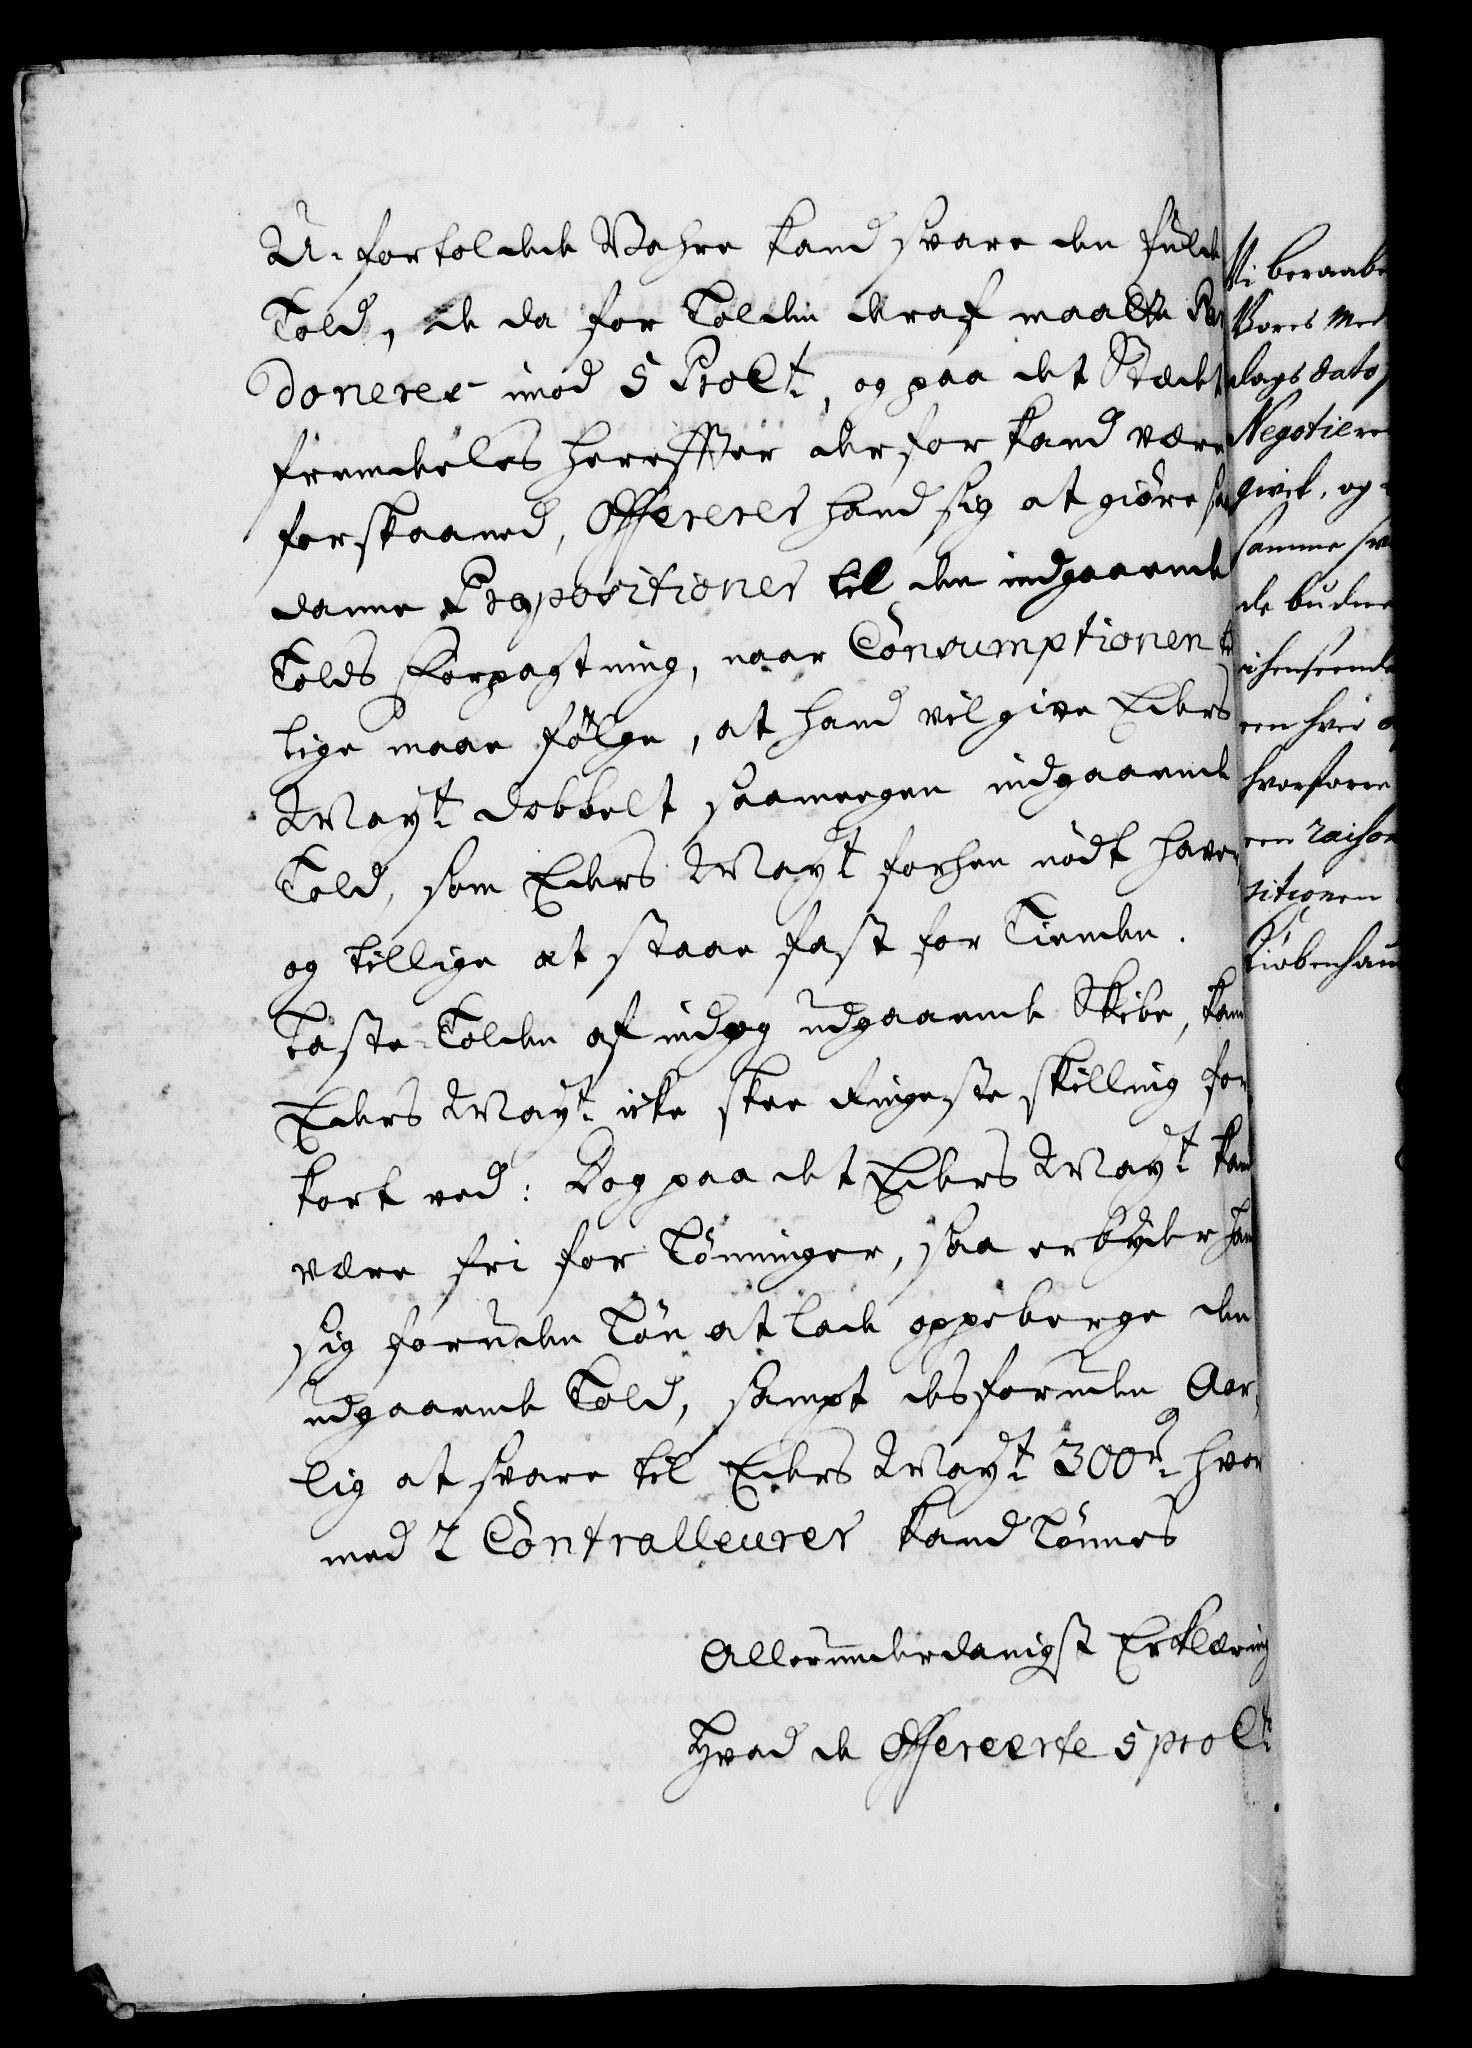 U-fortoldede Vahre kand svare den fulde
Told, de da for Tolden deraf maatte Par
doneres imod 5 ProCt, og paa det Stædet
fremdeeles hereffter derfor kand være
forskaaned, Offererer hand sig at giøre saa
danne Propositioner til den indgaaende
Tolds Forpagtning, naar Consumptionen til
lige maae følge, at hand vil give Eders
Mayt dobbelt saameegen indgaaende
Told, som Eders Mayt forhen nødt haver
og tillige at staae fast for Tienden.
Laste-Tolden af ind og udgaaende Skibe, kand
Eders Mayt icke skee ringeste skilling for
kort ved: Dog paa det Eders Mayt kand
være fri for Lønninger, saa erbyder hand
sig foruden Løn at lade oppeberge den
udgaaende Told, sampt desforuden Aar,
lig at svare til Eders Mayt 300 rd. hvor
med 2 Contralleurer kand Lønnes
Allerunderdanigst Erklæring
Hvad de Offereerte 5 pro Ct
Vi beraabe
Vores Me
dags dato
Negotiere
givet, og
samme sva
de budne
ihenseende
een hver
hvorforre
een raison
sitionen
Kiøbenhau